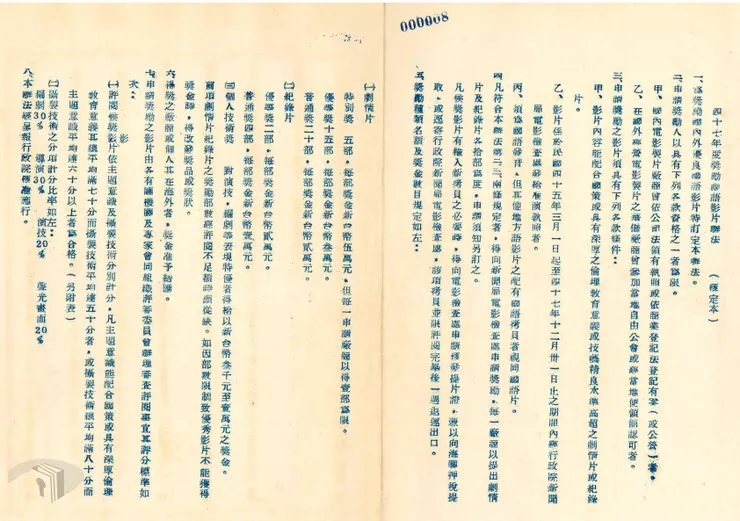 000008
四十七年度獎勵國語影片辦法 (核定本)
一、為獎勵國內外優良國語影片特訂定本辦法。
二、申請獎勵人以具有下列各款資格之一者為限。
甲、國內電影製片廠商曾依公司法領有執照或依商業登記法登記有案(或公營)者。
乙、在國外專營電影製片之華僑廠商曾參加當地自由公會或經當地使領館認可者。
三、申請獎勵之影片須具有下列各款條件：
甲、影片內容能配合國策或具有深厚之倫理教育意義或技藝精良水準高超之劇情片或紀錄片。
乙、影片係於民國四十五年三月一日起至四十七年十二月卅一日止之期間內經行政院新聞
局電影檢查處發給准演執照者。
丙、須為國語發音，但其他地方語影片之配有國語拷貝者視同國語片。
四、凡符合本辦法第二、三、兩條規定者，得向新聞局電影檢查處申請獎勵，每一廠商以提出劇情
片及紀錄片各拾部為度，申請須知另訂之。
凡候獎影片有機人新拷貝之必要時，得向電影檢查處申請核發提片證，憑以向海關押稅提
取，或逕寄行政院新聞局電影檢查處，該項拷貝並限評閱完畢後一週退運出口。
五、獎勵種類名額及獎金數目規定如左：
(一)劇情片
特別獎 五部，每部獎金新台幣伍萬元，但每一申請廠商以得壹部為限。
優等獎十五部，每部獎金新台幣叁萬元。
普通獎二十部，每部獎金新台幣貳萬元。
(二)紀錄片
優等獎二部，每部獎金新台幣貳萬元。
普通獎四部，每部獎金新台幣壹萬元。
(三)個人技術獎 對演技，編劇等表現特優者得給以新台幣叁千元至壹萬元之獎金。
前項劇情片紀錄片之獎勵部數經評閱不足額時應從缺。如因部數限制致優秀影片不能獲得
獎金時，得改發獎品或獎狀。
六、得獎之廠商或個人其在海外者，獎金准予結匯。
七、申請獎勵之影片由各有關機關及專家會同組織評審委員會辦理審查評閱事宜其評分標準如
次：
(一)評閱候獎影片依主題意識及攝製技術分別計分，凡主題意識能配合國策或具有深厚倫理
教育意義其總平均滿七十分而攝製技術平均達五十分者，或攝製技術總平均滿八十分而
主題意識平均達六十分以上者為合格。(另附表)
(二)攝製技術之分項計分比率如左：
編劇30% 導演30% 演技20% 聲光畫面20%
八、本辦法經呈報行政院核准施行。